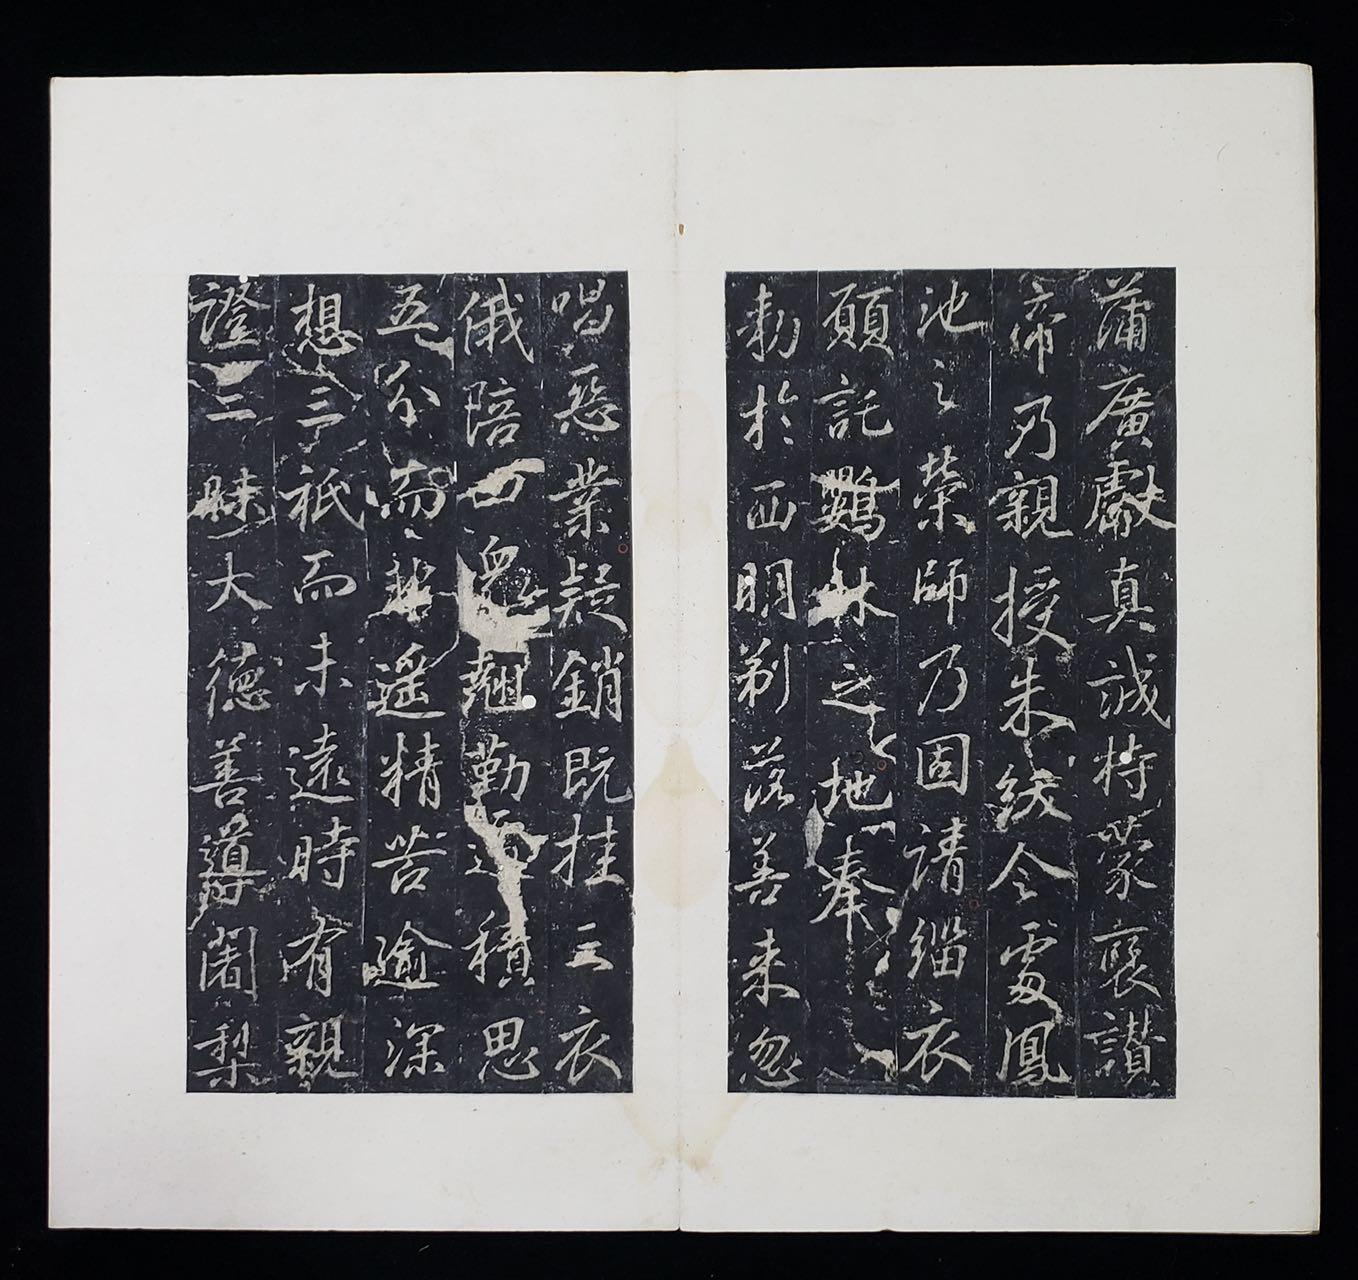 蒲廣獻真誠特蒙襃讃
帝乃親授朱紱令處鳳
池之榮師乃固請緇衣
願託鸚林之地奉
勑於西明剃落善来忽
唱惡業疑銷既挂三衣
俄陪四衆翹勤逾積思
五分而非遥精苦逾深
想三祇而未遠時有親
證三昧大德善導闍梨